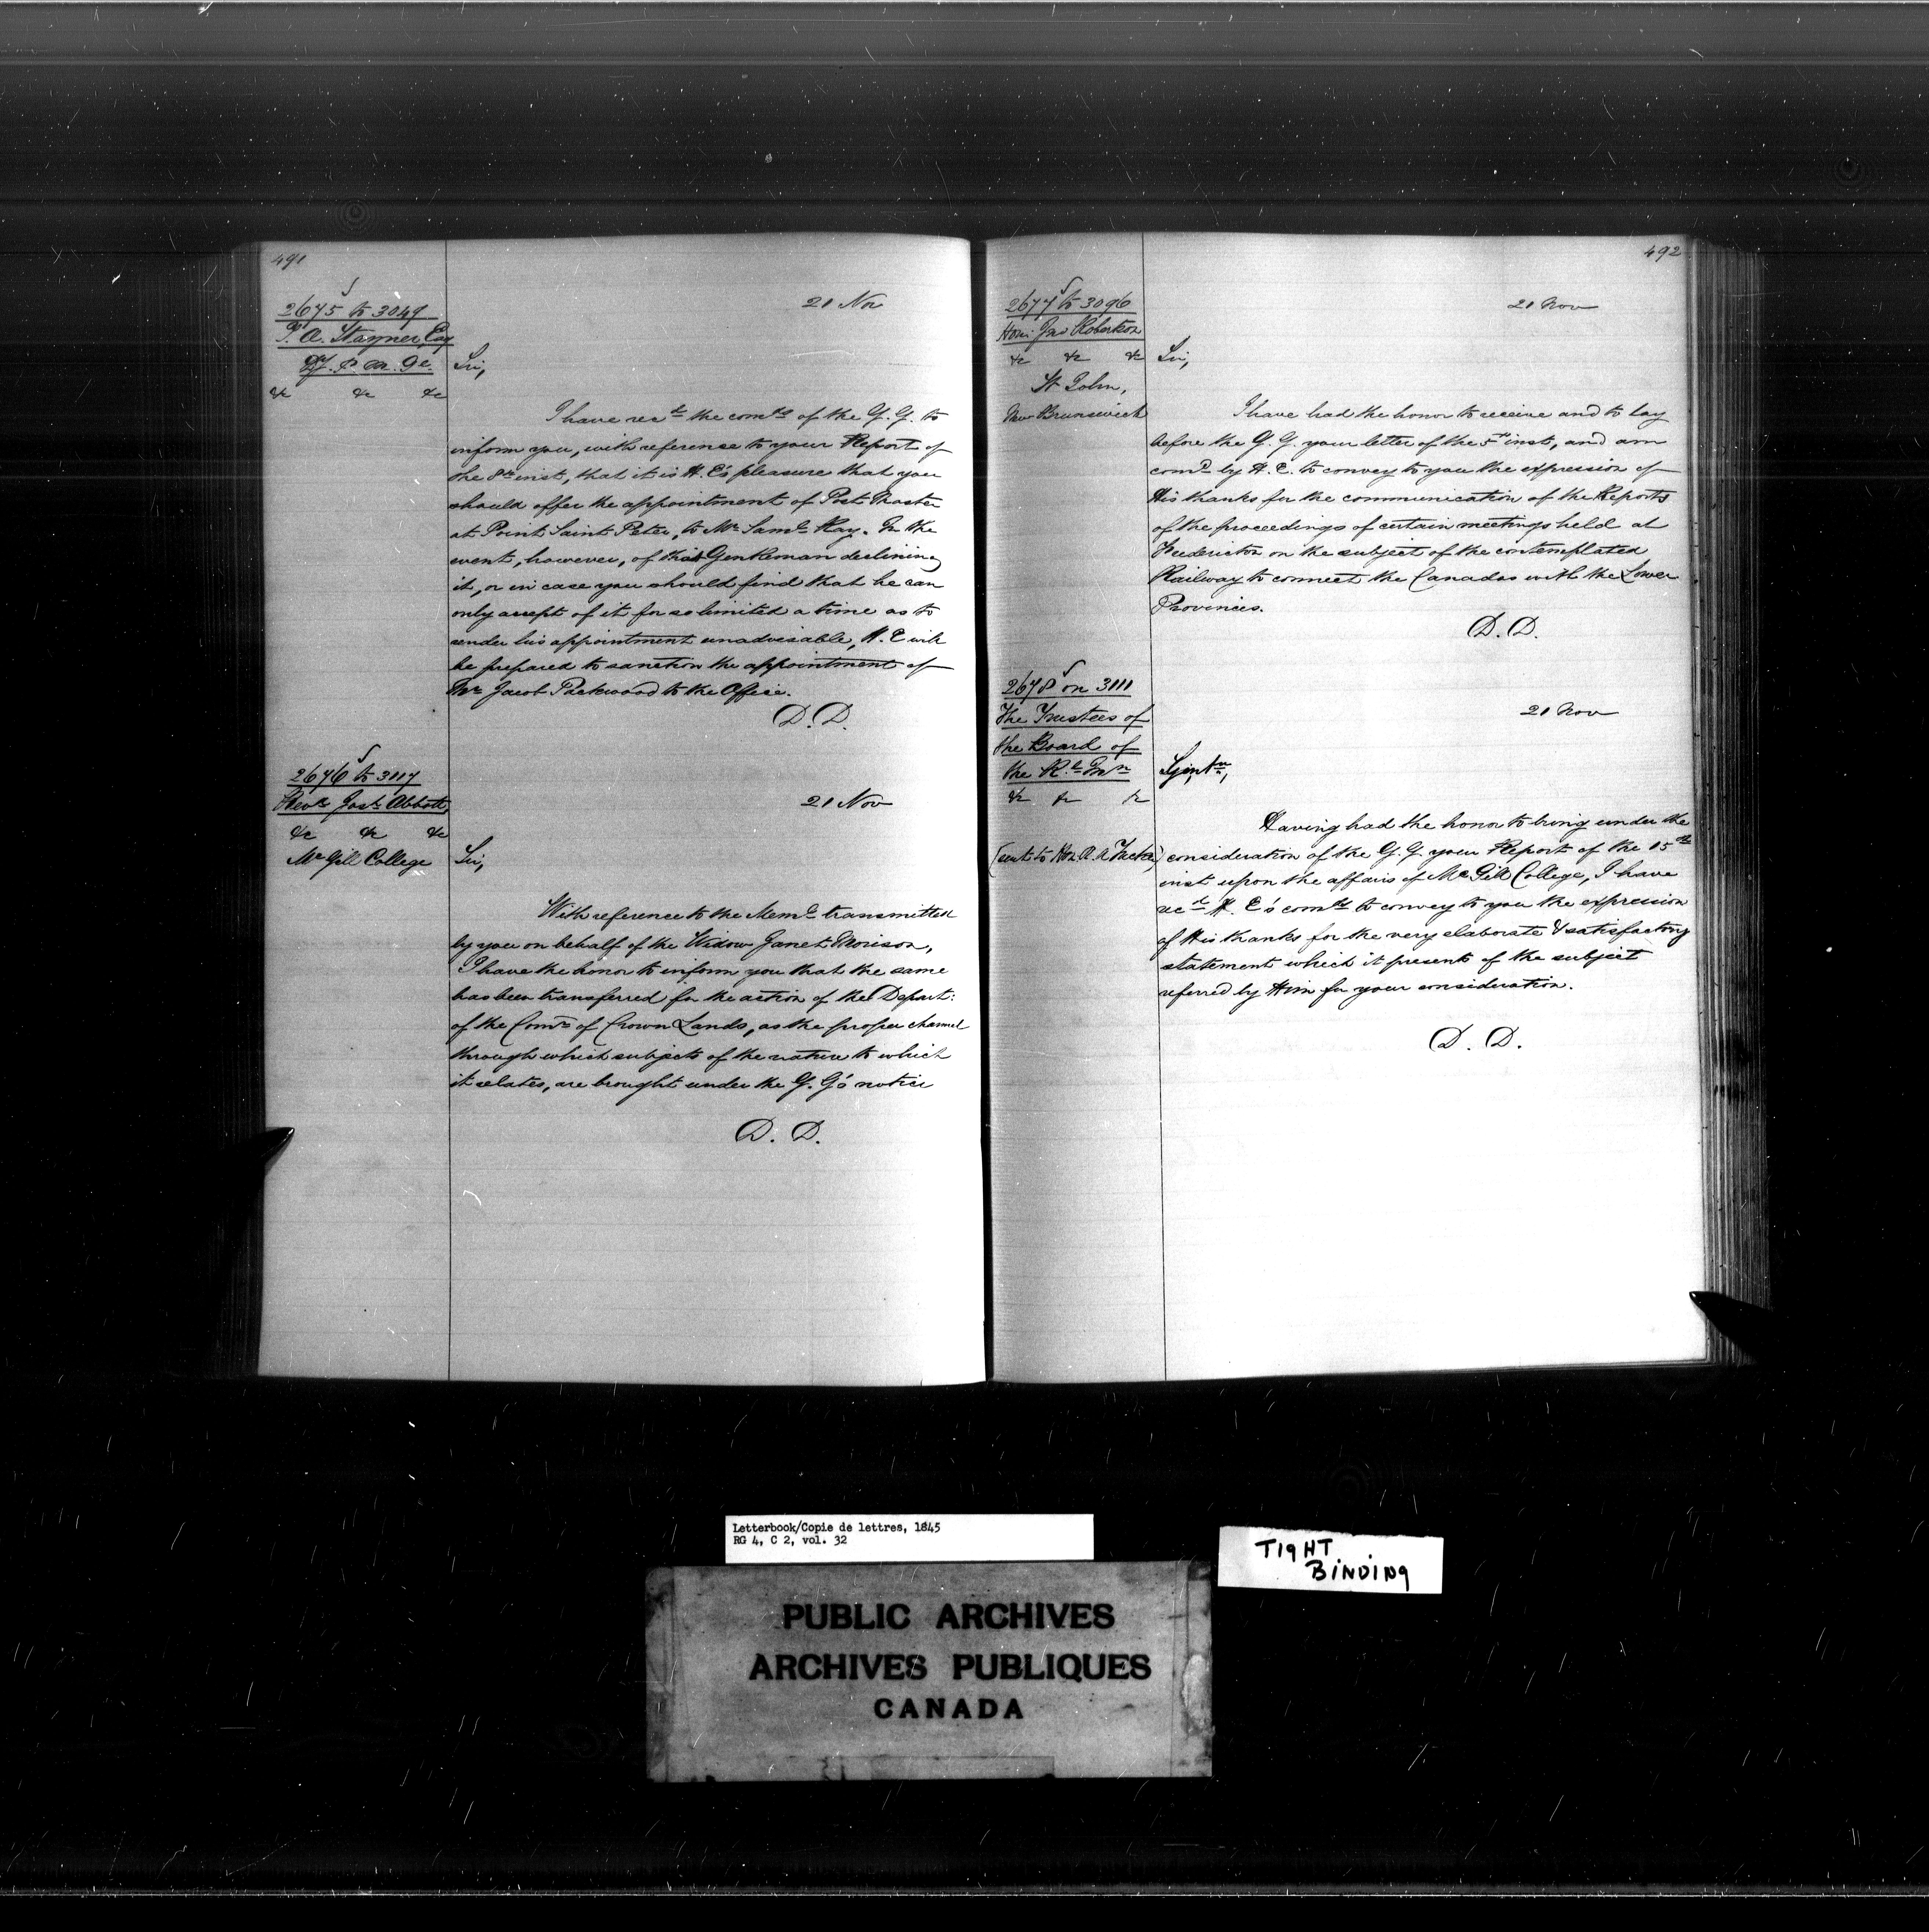 491
S
2675 to 3049
T. A. Stayner Esq
Dy. P. M. Gl.
&c &c &c
21 Nov
Sir,
I have recd the comds of the G. G. to
inform you, with reference to your Report of
the 8th inst, that it is H. E's pleasure that you
should offer the appointment of Post Master
at Point Saint Peter, to Mr Saml Kay. In the
event, however, of that Gentleman declining
it, or in case you should find that he can
only accept of it for so limited a time as to
render his appointment unadvisable, H. E will
be prepared to sanction the appointment of
Mr Jacob Packwood to the Office.
D. D.
S
2676 to 3117
Revd Josh Abbott
&c &c &c
McGill College
21 Nov
Sir,
With reference to the Meml transmitted
by you on behalf of the Widow Janet Morison,
I have the honor to inform you that the same
has been transferred for the action of the Depart:
of the Comr of Crown Lands, as the proper channel
through which subjects of the nature to which
it relates, are brought under the G. G's notice
D. D.
492
S
2677 to 3096
Hon: Jno Robertson
&c &c &c
St John,
New Brunswick
21 Nov
Sir,
I have had the honor to receive and to lay
before the G. G. your letter of the 5th inst, and am
comd by H. E. to convey to you the expression of
His thanks for the communication of the Reports
of the proceedings of certain meetings held at
Fredericton on the subject of the contemplated
Railway to connect the Canadas with the Lower
Provinces.
D. D.
S
2678 on 3111
The Trustees of
the Board of
the Rl Inn
&c &c &c
(sent to Hon. A.
21 Nov
Gentn,
Having had the honor to bring under the
consideration of the G. G. your Report of the 15th
inst upon the affairs of McGill College, I have
recd H. E's comds to convey to you the expression
of His thanks for the very elaborate & satisfactory
statement which it presents of the subject
referred by Him for your consideration.
D. D.
Letterbook/Copie de lettres, 1845
RG 4, C 2, vol. 32
TIGHT
BINDING
PUBLIC ARCHIVES
ARCHIVES PUBLIQUES
CANADA